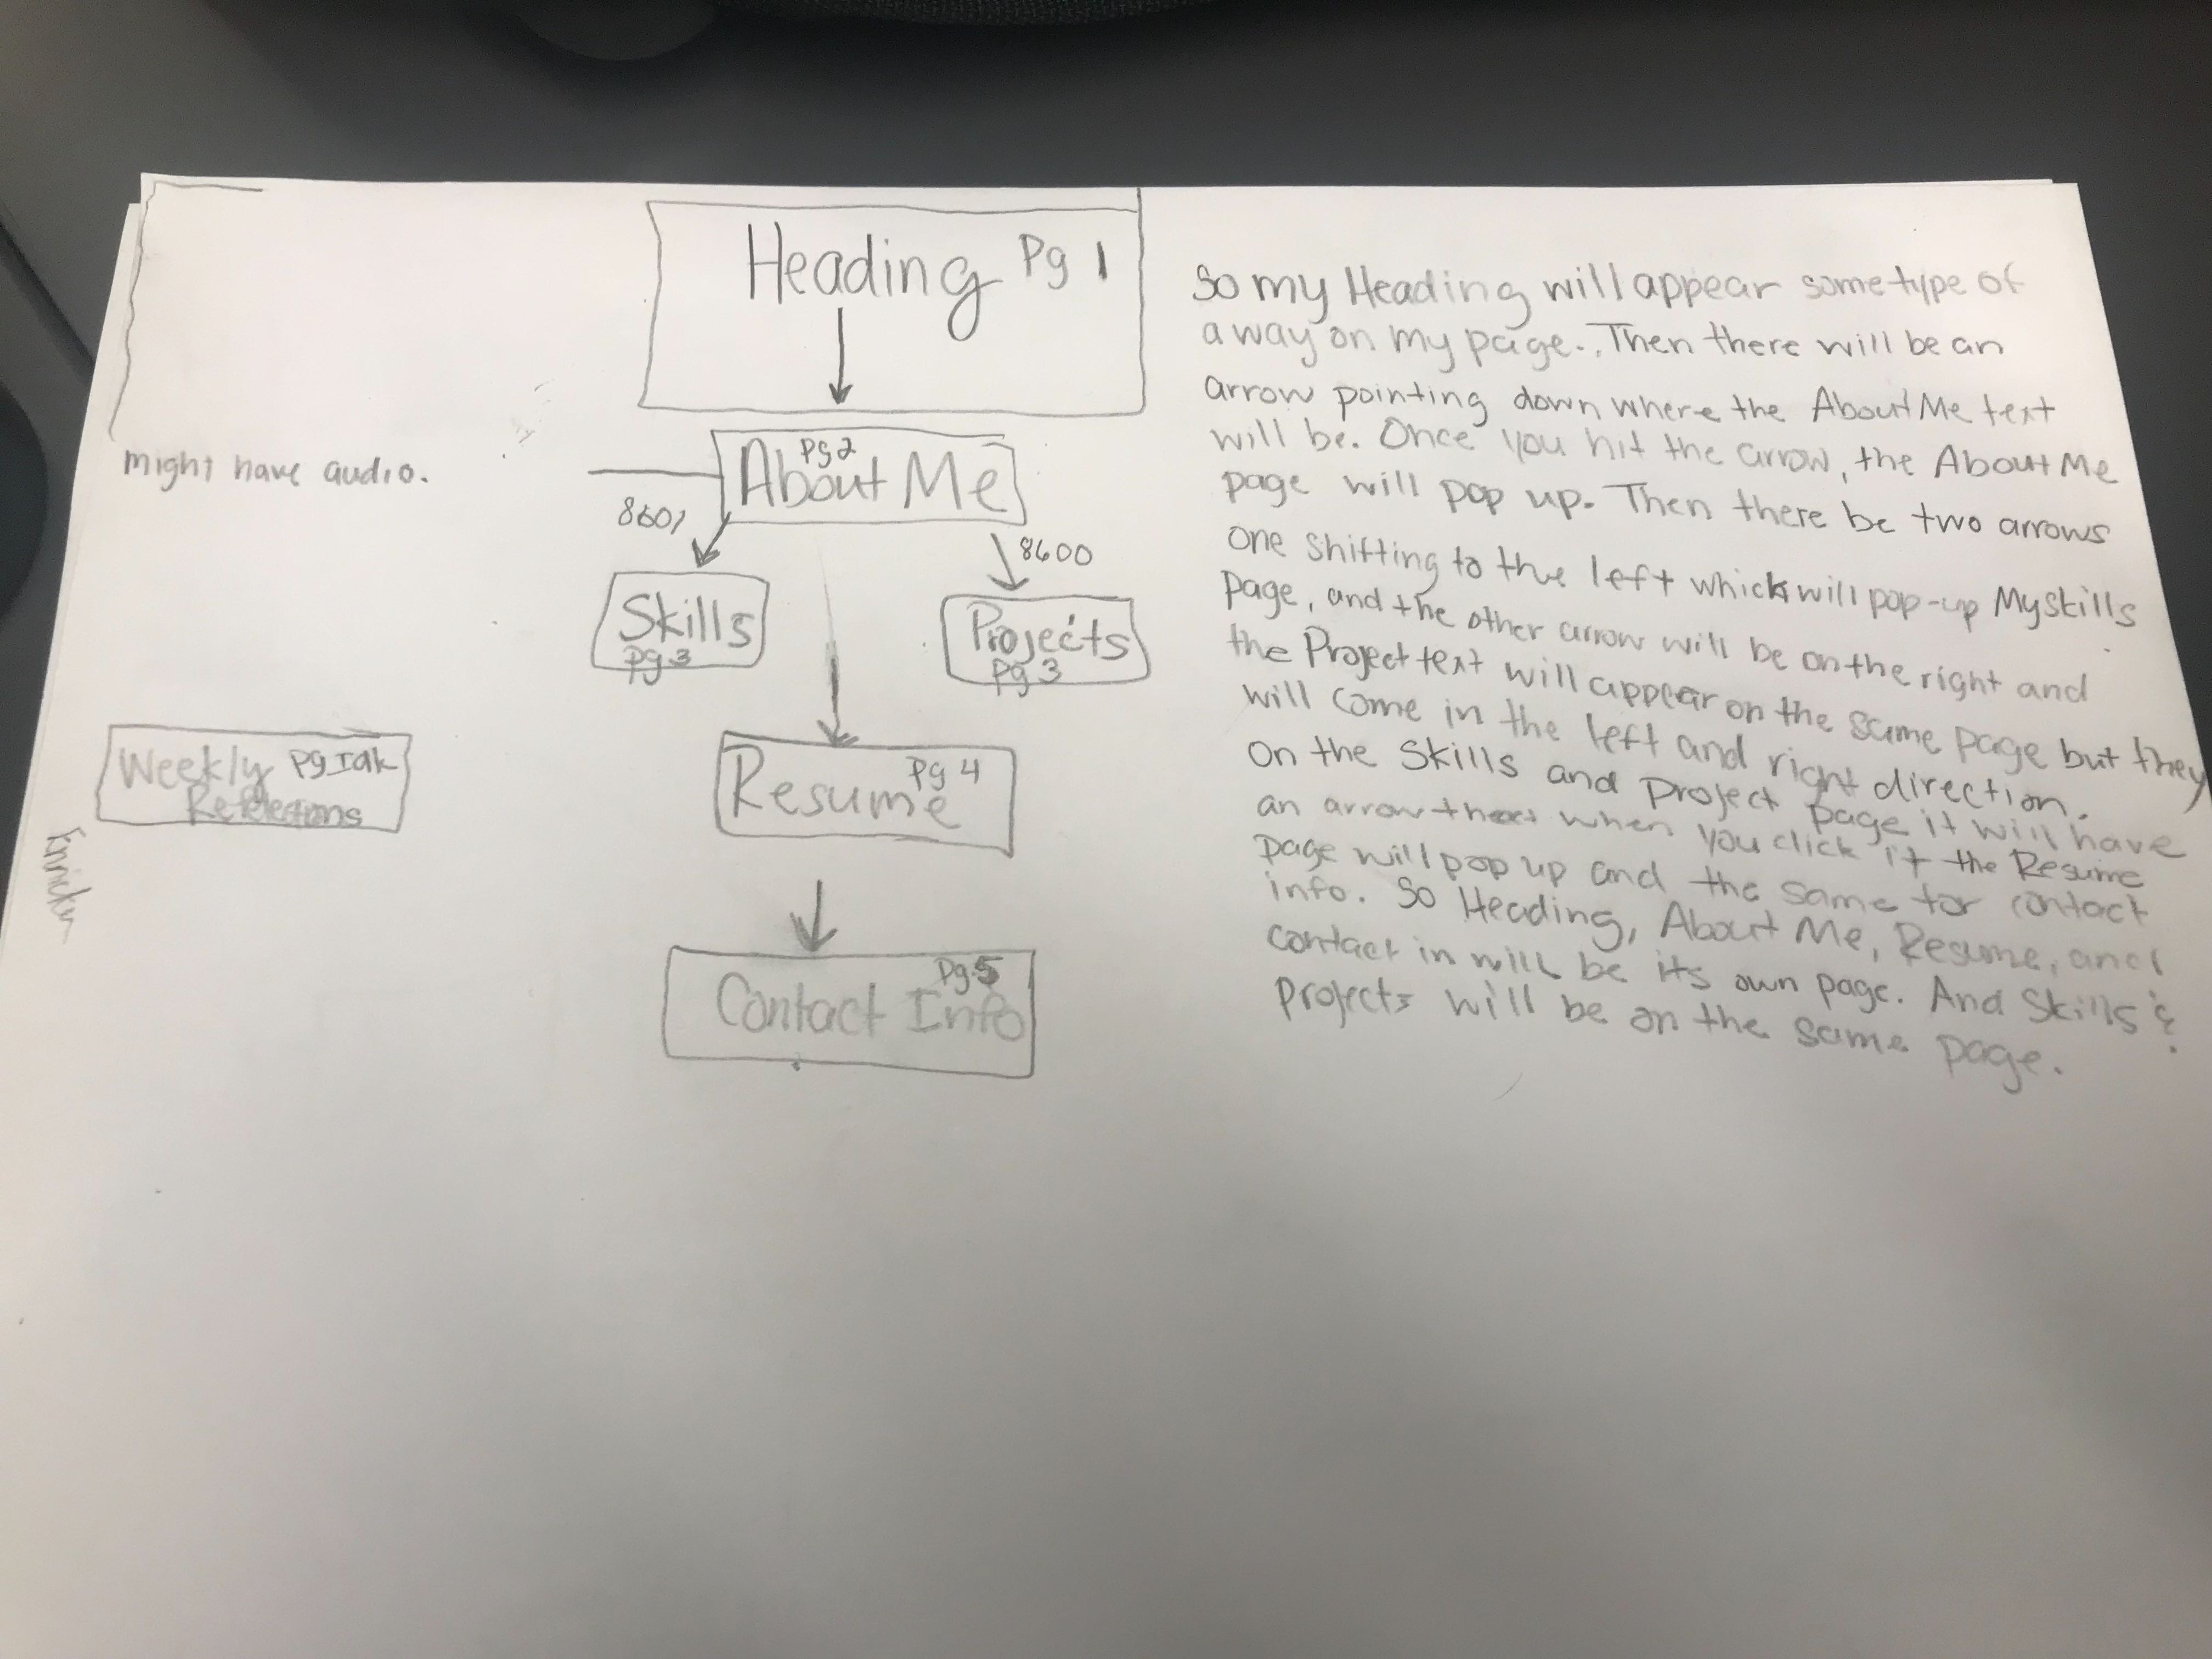 Heading Pg 1
might have audio.
Pg 2
About Me
8601
8600
Skills
pg 3
Projects
pg 3
Weekly Pg Idk
Resume Pg 4
Contact Info Pg.5
So my Heading will appear some type of
a way on my page. Then there will be an
arrow pointing down where the About Me text
will be. Once you hit the arrow, the About Me
page will pop up. Then there be two arrows
one shifting to the left which will pop-up My skills
Page, and the other arrow will be on the right and
the Project text will appear on the same page but they
will come in the left and right direction.
On the Skills and Project page it will have
an arrow when you click it the Resume
page will pop up and the same for contact
info. So Heading, About Me, Resume, and
contact in will be its own page. And Skills &
projects will be on the same page.